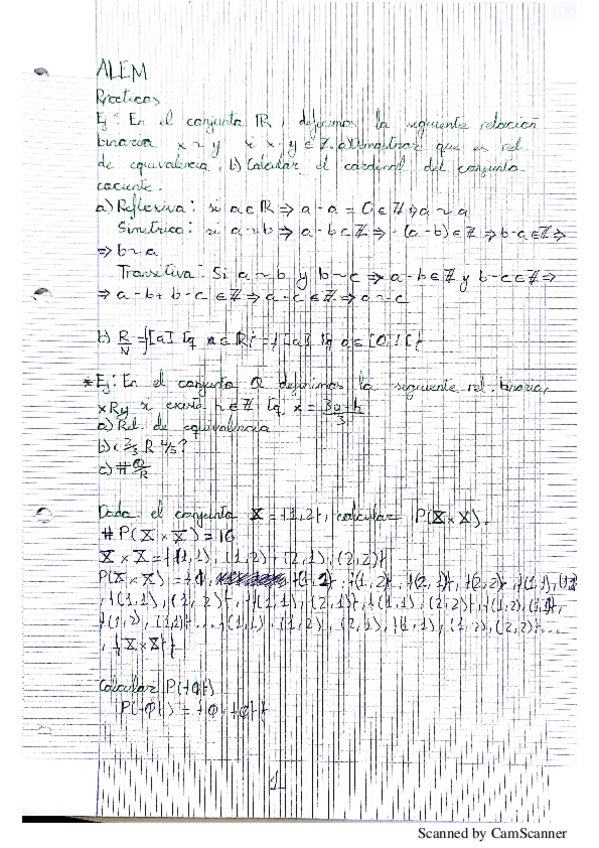 ALEM
Practicas
Ej: En el conjunto ℝ, definimos la siguiente relación
binaria x ~ y si x-y ∈ ℤ. a) Demostrar que es rel
de equivalencia. b) Calcular el cardinal del conjunto
cociente.
a) Reflexiva: si a ∈ ℝ ⇒ a - a = 0 ∈ ℤ ⇒ a ~ a
Simétrica: si a ~ b ⇒ a - b ∈ ℤ ⇒ -(a-b) ∈ ℤ ⇒ b-a ∈ ℤ ⇒
⇒ b ~ a
Transitiva: Si a ~ b y b ~ c ⇒ a-b ∈ ℤ y b-c ∈ ℤ ⇒
⇒ a-b+b-c ∈ ℤ ⇒ a-c ∈ ℤ ⇒ a ~ c
b) ℝ/~ = {[a] tq a ∈ ℝ} = {[a] tq a ∈ [0,1[}
*Ej: En el conjunto ℚ definimos la siguiente rel. binaria,
xRy si existe h ∈ ℤ tq x = (3y+h)/3
a) Rel. de equivalencia
b) ¿2/3 R 4/5?
c) # ℚ/R
Dado el conjunto X = {1,2}, calcular P(X×X).
# P(X×X) = 16
X×X = {(1,1), (1,2), (2,1), (2,2)}
P(X×X) = {∅, {(1,1)}, {(1,2)}, {(2,1)}, {(2,2)}, {(1,1),(1,2)}
, {(1,1), (1,2)}, {(1,1), (2,1)}, {(1,1), (2,2)}, {(1,2),
... {(1,1), (1,2), (2,1)}, {(1,1), (1,2), (2,2)}...
, {X×X}}
Calcular P({∅})
P({∅}) = {∅, {∅}}
1
Scanned by CamScanner